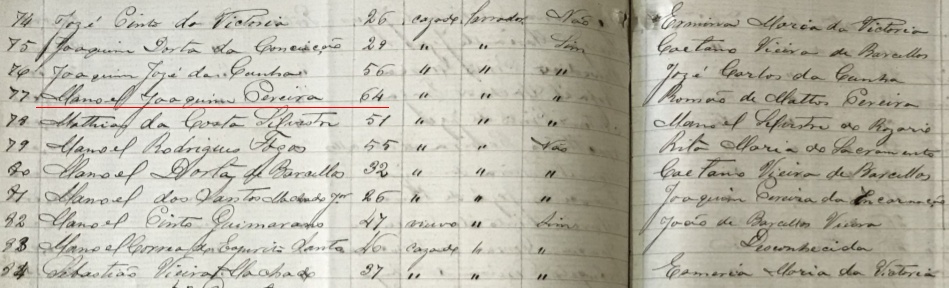 74 José Pinto da Victoria 26 cazado Lavrador Não Ermina Maria da Victoria
75 Joaquim Dorta da Conceição 29 " " Sim Caetano Vieira de Barcellos
76 Joaquim Jozé da Cunha 56 " " " Jozé Carlos da Cunha
77 Manoel Joaquim Pereira 64 " " " Romão de Mattos Pereira
78 Mathias da Costa Silvestre 51 " " " Manoel Silvestre do Rozario
79 Manoel Rodrigues 55 " " Não Rita Maria do Sacramento
80 Manoel Dorta de Barcellos 32 " " " Caetano Vieira de Barcellos
81 Manoel dos Santos Machado Jor 26 " " " Joaquim Pereira da Encarnação
82 Manoel Pinto Guimarães 47 viuvo " Sim João de Barcellos Vieira
83 Manoel Correa do Espirito Santo 46 cazado " " Desconhecida
84 Sebastião Vieira Machado 37 " " " Esmeria Maria da Victoria